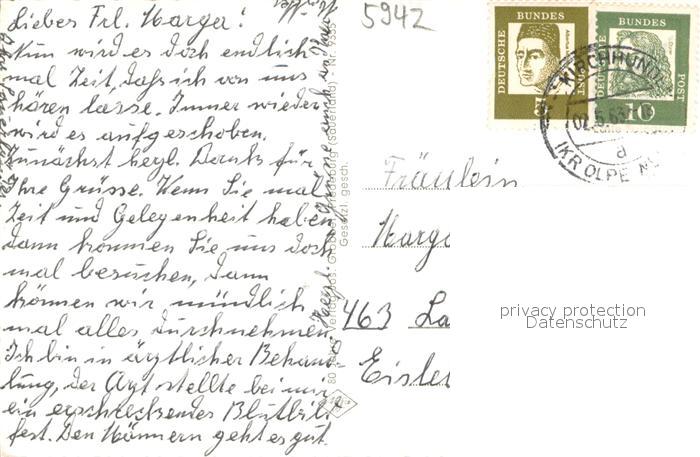 Liebes Frl. Marga!
Nun wird es doch endlich
mal Zeit, daß ich von uns
hören lasse. Immer wieder
wird es aufgeschoben.
Zunächst herzl. Dank für
Ihre Grüsse. Wenn Sie mal
Zeit und Gelegenheit haben,
dann kommen Sie uns doch
mal besuchen, dann
können wir mündlich
mal alles durchnehmen.
Ich bin in ärztlicher Behand-
lung, der Arzt stellte bei mir
ein erschreckendes Blutbild
fest. Den Männern geht es gut.
5942
DEUTSCHE BUNDESPOST
DEUTSCHE BUNDESPOST
10
KIRCHHUND
02.5.63
a
(KR OLPE
(Sauerland)
Gesetzl. gesch.
Fräulein
Marga
463 La
Eisle
privacy protection
Datenschutz